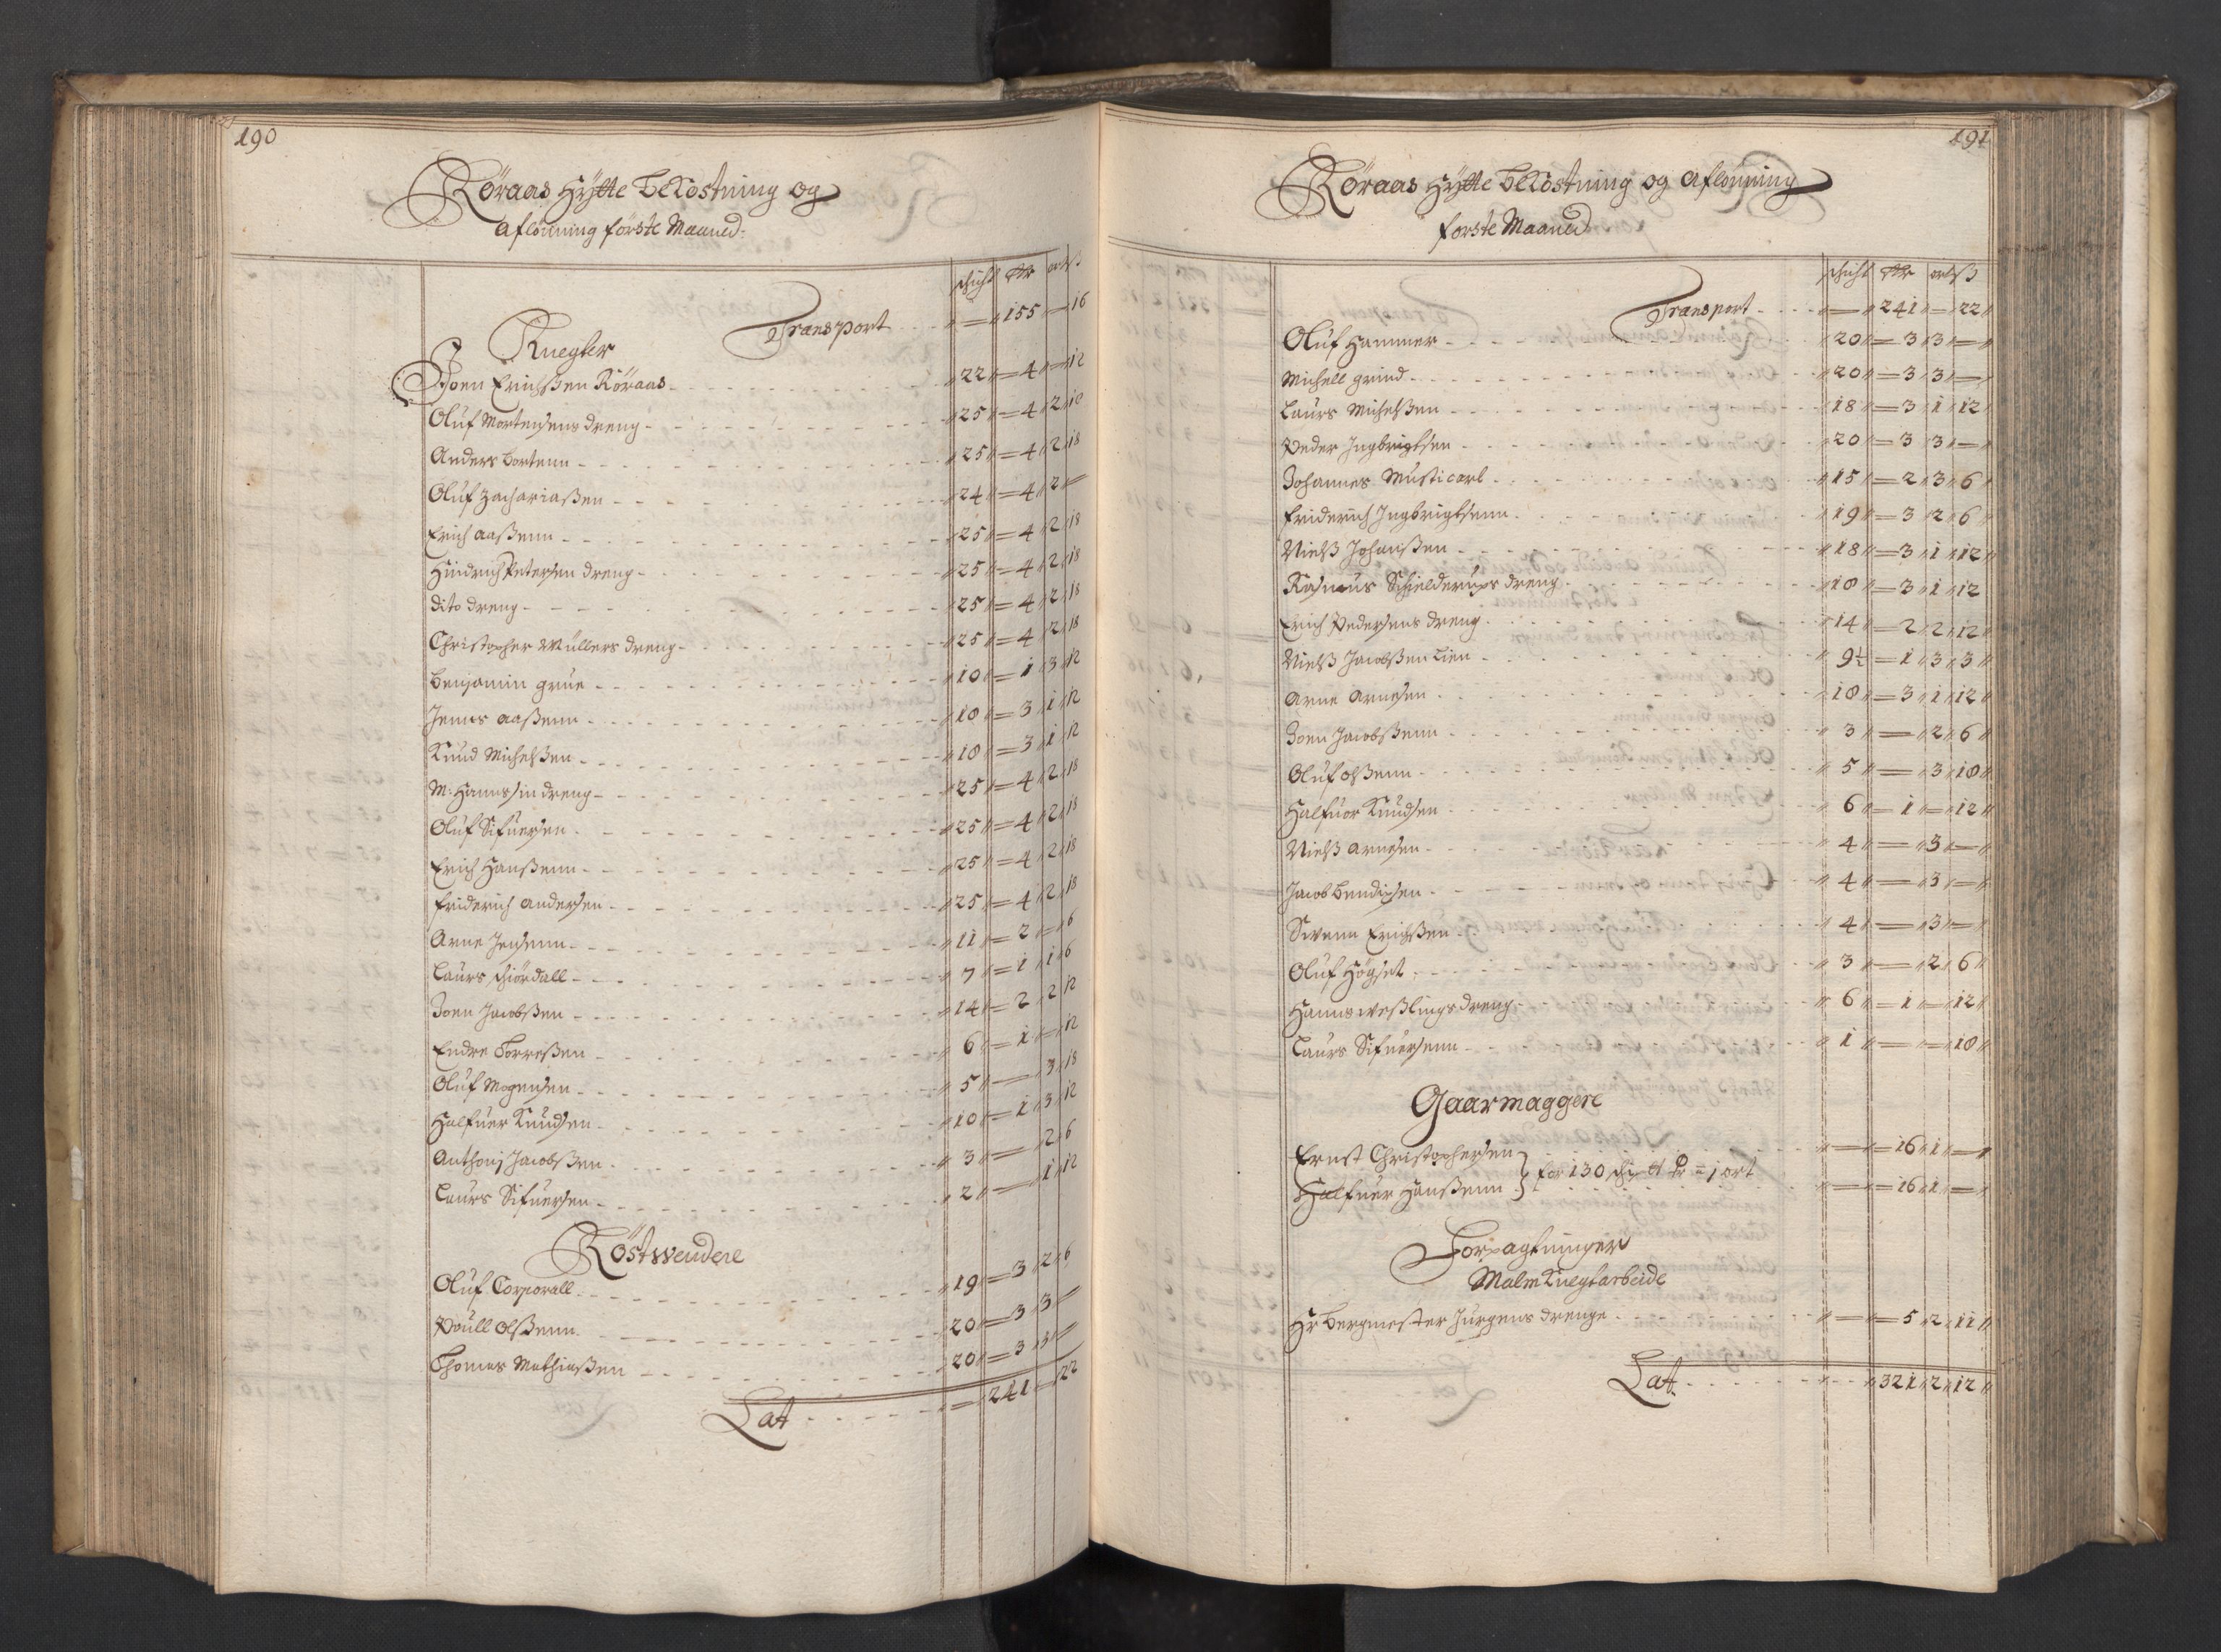 190
Röraas Hÿtte bekostning og
aflönning förste Maaned
schicht Rdr ort ß
Transport . . . „ — „ 155 — 16
Knegter
Joen Erichßen Röraas „ 22 „ — 4 „ — „ 12
Oluf Mortensens dreng „ 25 „ — 4 „ 2 „ 18
Anders Bortenn „ 25 „ — 4 „ 2 „ 18
Oluf Zachariaßen „ 24 „ — 4 „ 2 „ —
Erich Aaßenn „ 25 „ — 4 „ 2 „ 18
Hindrich Petersen dreng „ 25 „ — 4 „ 2 „ 18
dito dreng „ 25 „ — 4 „ 2 „ 18
Christopher Müllers dreng „ 25 „ — 4 „ 2 „ 18
Benjamin grue „ 10 „ — 1 „ 3 „ 12
Jenns Aaßenn „ 18 „ — 3 „ 1 „ 12
Knud Michelßen „ 18 „ — 3 „ 1 „ 12
M: Hannß sin dreng „ 25 „ — 4 „ 2 „ 18
Oluf Sifuersen „ 25 „ — 4 „ 2 „ 18
Erich Hanßenn „ 25 „ — 4 „ 2 „ 18
Friderich Andersen „ 25 „ — 4 „ 2 „ 18
Arne Jensenn „ 11 „ — 2 „ — „ 6
Laurs Stiördall „ 7 „ — 1 „ 1 „ 6
Joen Jacobßen „ 14 „ — 2 „ 2 „ 12
Endre Torreßen „ 6 „ — 1 „ — „ 12
Oluf Mogensen „ 5 „ — „ 3 „ 18
Halfuer Knudsen „ 10 „ — 1 „ 3 „ 12
Anthonj Jacobßen „ 3 „ — „ 2 „ 6
Laurs Sifuersen „ 2 „ — „ 1 „ 12
Röstwendere
Oluf Corporall „ 19 „ — 3 „ 2 „ 6
Poull Olßenn „ 20 „ — 3 „ 3 „ —
Thomas Mathiaßen „ 20 „ — 3 „ 3 „ —
Lat . . . „ — „ 241 „ — „ 22
191
Röraas Hÿtte bekostning og aflönning
förste Maaned
schicht Rdr ort ß
Transport . . . „ — „ 241 „ — „ 22 „
Oluf Hammer „ 20 „ — 3 „ 3 „ — „
Michell grind „ 20 „ — 3 „ 3 „ — „
Laurs Michelßen „ 18 „ — 3 „ 1 „ 12 „
Peder Ingbrigtsen „ 20 „ — 3 „ 3 „ — „
Johannes Musticarl „ 15 „ — 2 „ 3 „ 6 „
Friderich Ingbrigtsenn „ 19 „ — 3 „ 2 „ 6 „
Nielß Johanßen „ 18 „ — 3 „ 1 „ 12 „
Rasmus Schielderups dreng „ 18 „ — 3 „ 1 „ 12
Erich Pedersens dreng „ 14 „ — 2 „ 2 „ 12 „
Nielß Jacobßen Lien „ 9½ „ — 1 „ 3 „ 3 „
Arne Arnesen „ 18 „ — 3 „ 1 „ 12 „
Joen Jacobßenn „ 3 „ — „ 2 „ 6 „
Oluf Olßenn „ 5 „ — „ 3 „ 18 „
Halfuor Knudsen „ 6 „ — 1 „ — „ 12 „
Nielß Arnesen „ 4 „ — „ 3 „ — „
Jacob Bendixsen „ 4 „ — „ 3 „ — „
Swenn Erichßen „ 4 „ — „ 3 „ — „
Oluf Högset „ 3 „ — „ 2 „ 6 „
Hanns Weßlings dreng „ 6 „ — 1 „ — „ 12 „
Laurs Sifuersenn „ 1 „ — „ — „ 18 „
Gaarmaggere
Ernst Christophersen „ — „ — 16 „ 1 „ — „
for 130 à 1 ort
Halfuer Hanßenn „ — „ — 16 „ 1 „ — „
Forpagtninger
Malm Knegtarbeide
Hr Bergmester Jurgens drenge „ — „ — 5 „ 2 „ 11 „
Lat . . . „ — „ 321 „ 2 „ 12 „